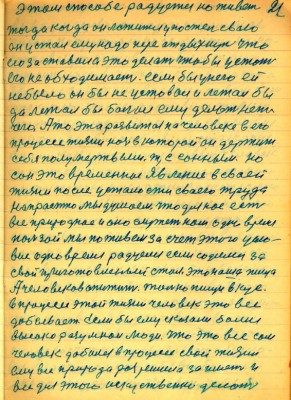 Этом способе радуется но живет 21
тогда когда он ложится в постель своё
он устал ему надо передохнуть что
его заставило это делать чтобы устоит
его необходимость. Если бы у него ей
небыло он бы не уставал и летал бы
да летал бы
чего. А то эта развитая на человеке в его
процессе жизни ночь в которой он держит
себя полумертвым, т.е. сонным. но
сон это временное явление в своей
жизни после усталости своего труда
напрасно мы думаем, что для нас есть
все природное и оно служит нам одно время
пользой мы поживем за счет этого
вие одно время радуемся если садимся за
свой приготовленный стол. это наша пища
А человек она тит. только пищи вкус.
в процессе этой жизни человек это все
добывает. Если бы ему сказали более
высоко разумном люди. что это все сам
человек добился в процессе своей жизни
ему вся природа разрешила за имеет и
все для этого искусственно делает